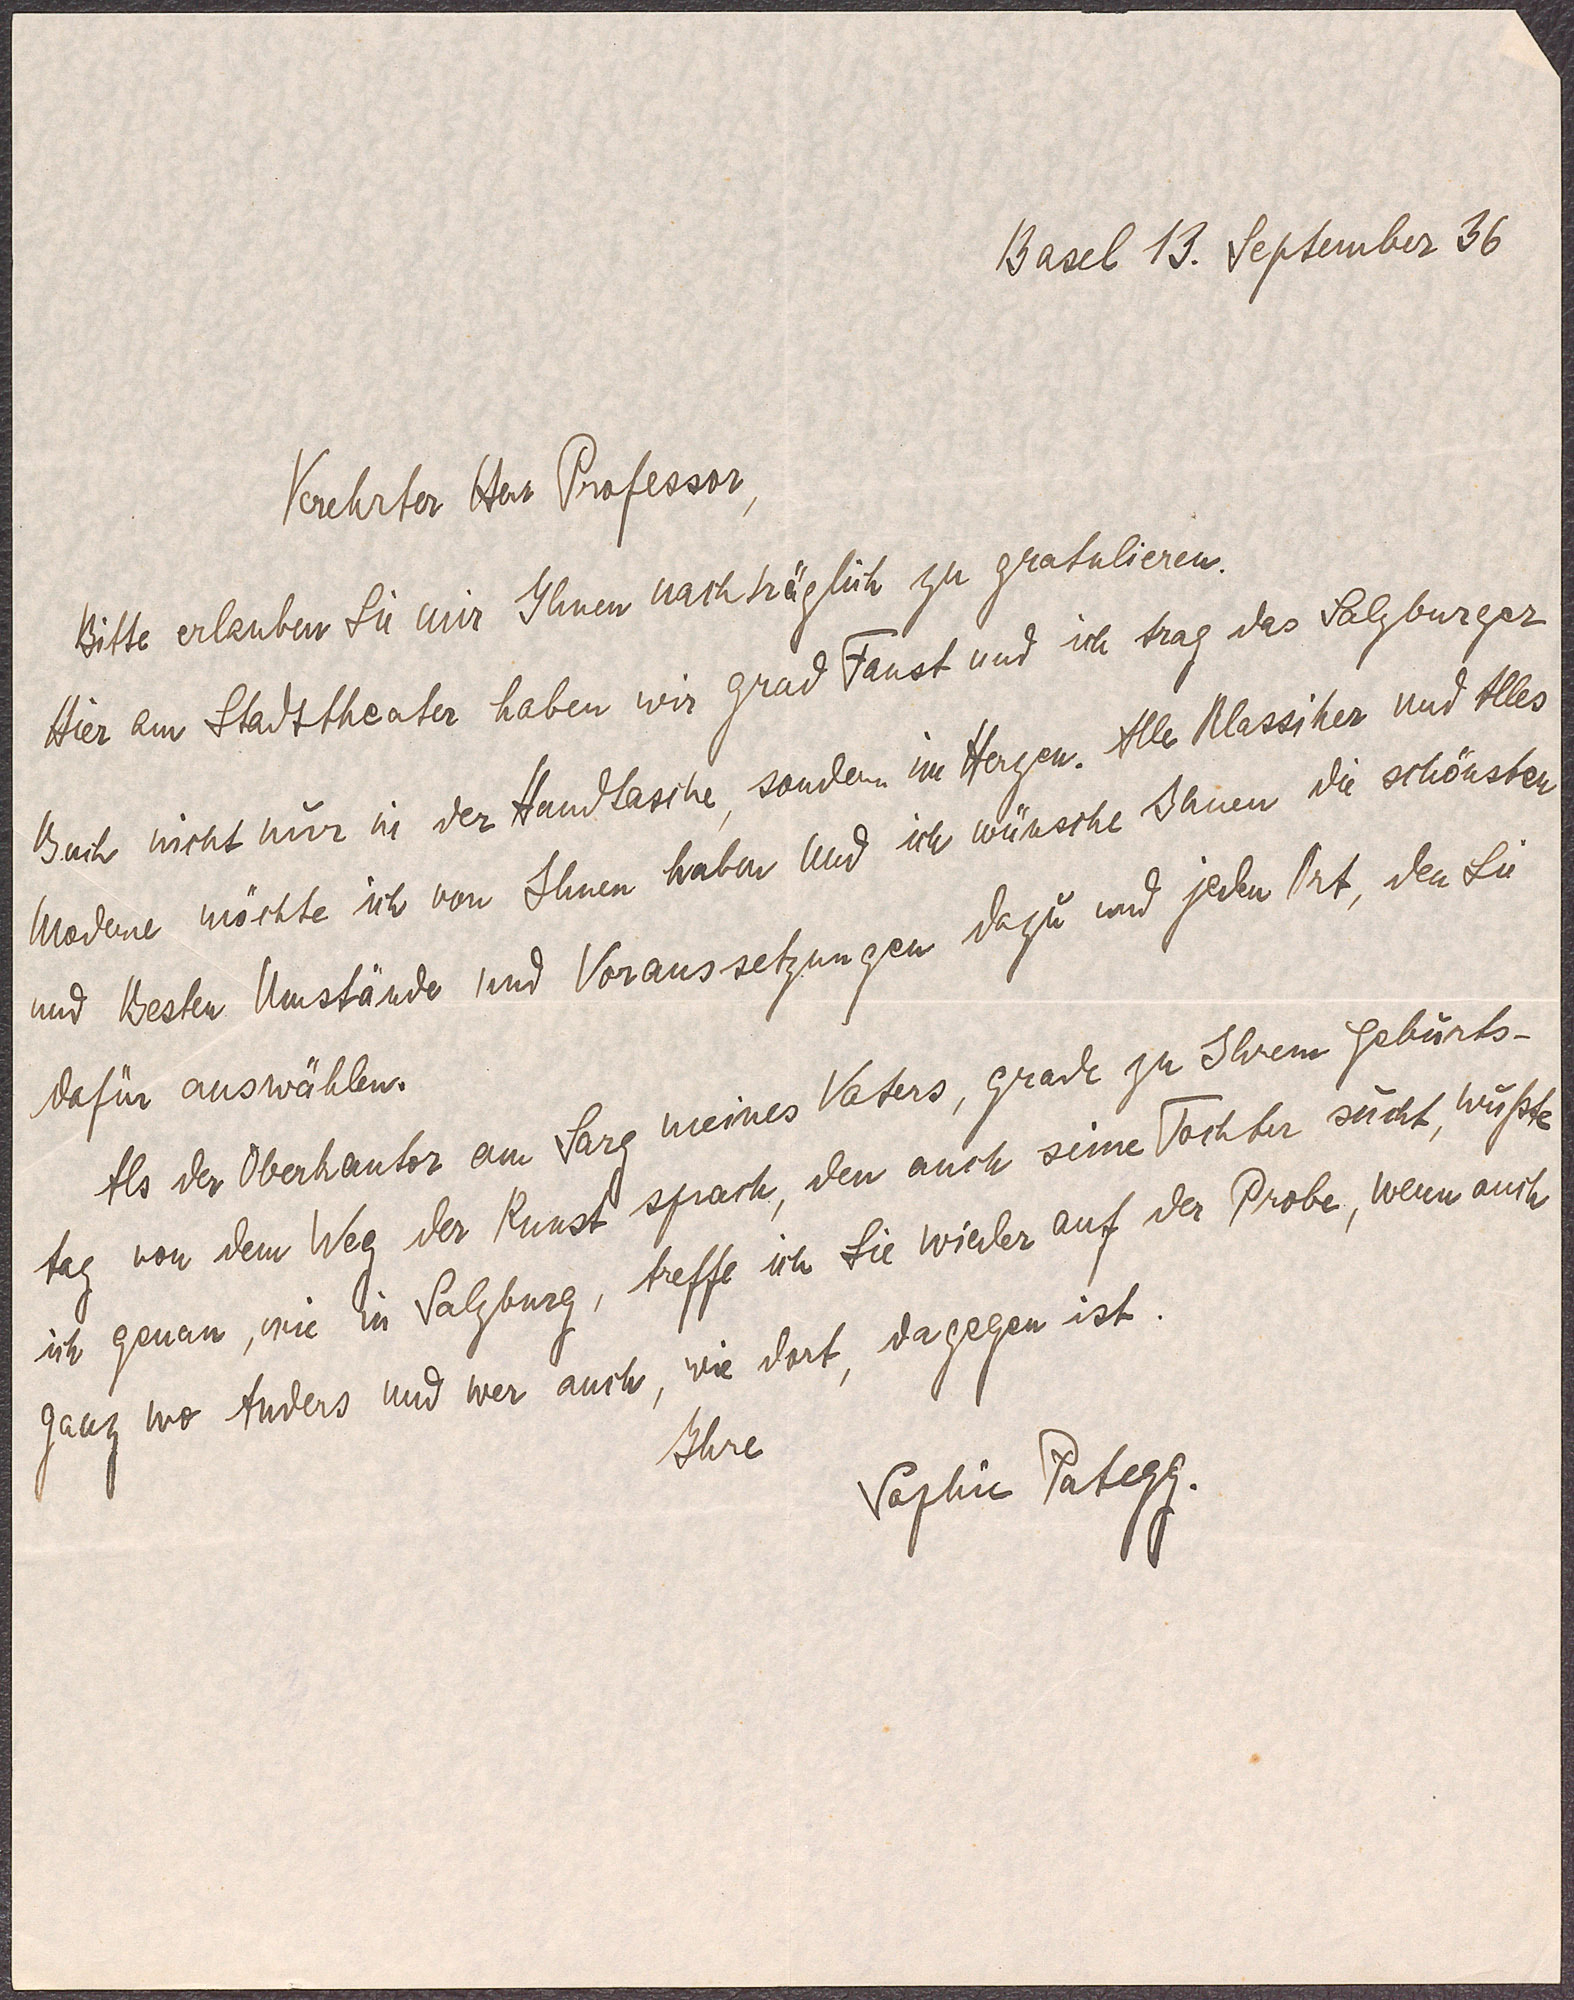 Basel 13. September 36
Verehrter Herr Professor,
Bitte erlauben Sie mir Ihnen nachträglich zu gratulieren.
Hier am Stadttheater haben wir grad Faust und ich trag das Salzburger
Buch nicht nur in der Handtasche, sondern im Herzen. Alle Klassiker und Alles
Moderne möchte ich von Ihnen haben und ich wünsche Ihnen die schönsten
und Besten Umstände und Voraussetzungen dazu und jeden Ort, den Sie
dafür auswählen.
Als der Oberkantor am Sarg meines Vaters, grade zu Ihrem Geburts-
tag von dem Weg der Kunst sprach, den auch seine Tochter sucht, wußte
ich genau, wie in Salzburg, treffe ich Sie wieder auf der Probe, wenn auch
ganz wo Anders und wer auch, wie dort, dagegen ist.
Ihre
Sophie Pategg.